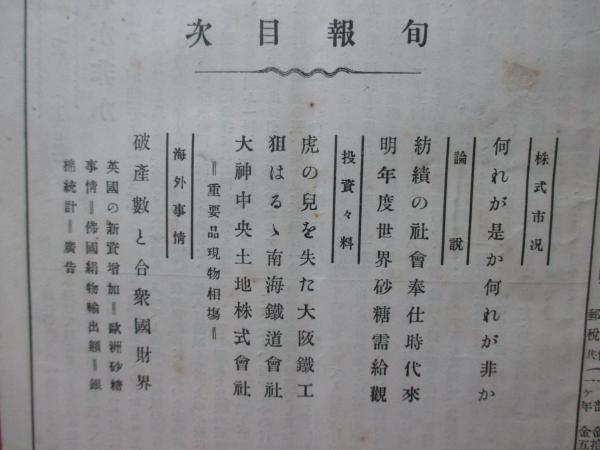 旬報目次
株式市況
何れが是か何れが非か
論説
紡績の社會奉仕時代來
明年度世界砂糖需給觀
投資々料
虎の兒を失た大阪鐵工
狙はるゝ南海鐵道會社
大神中央土地株式會社
＝重要品現物相塲＝
海外事情
破產數と合衆國財界
英國の新資增加＝歐洲砂糖
事情＝佛國絹物輸出額＝銀
棉統計＝廣告